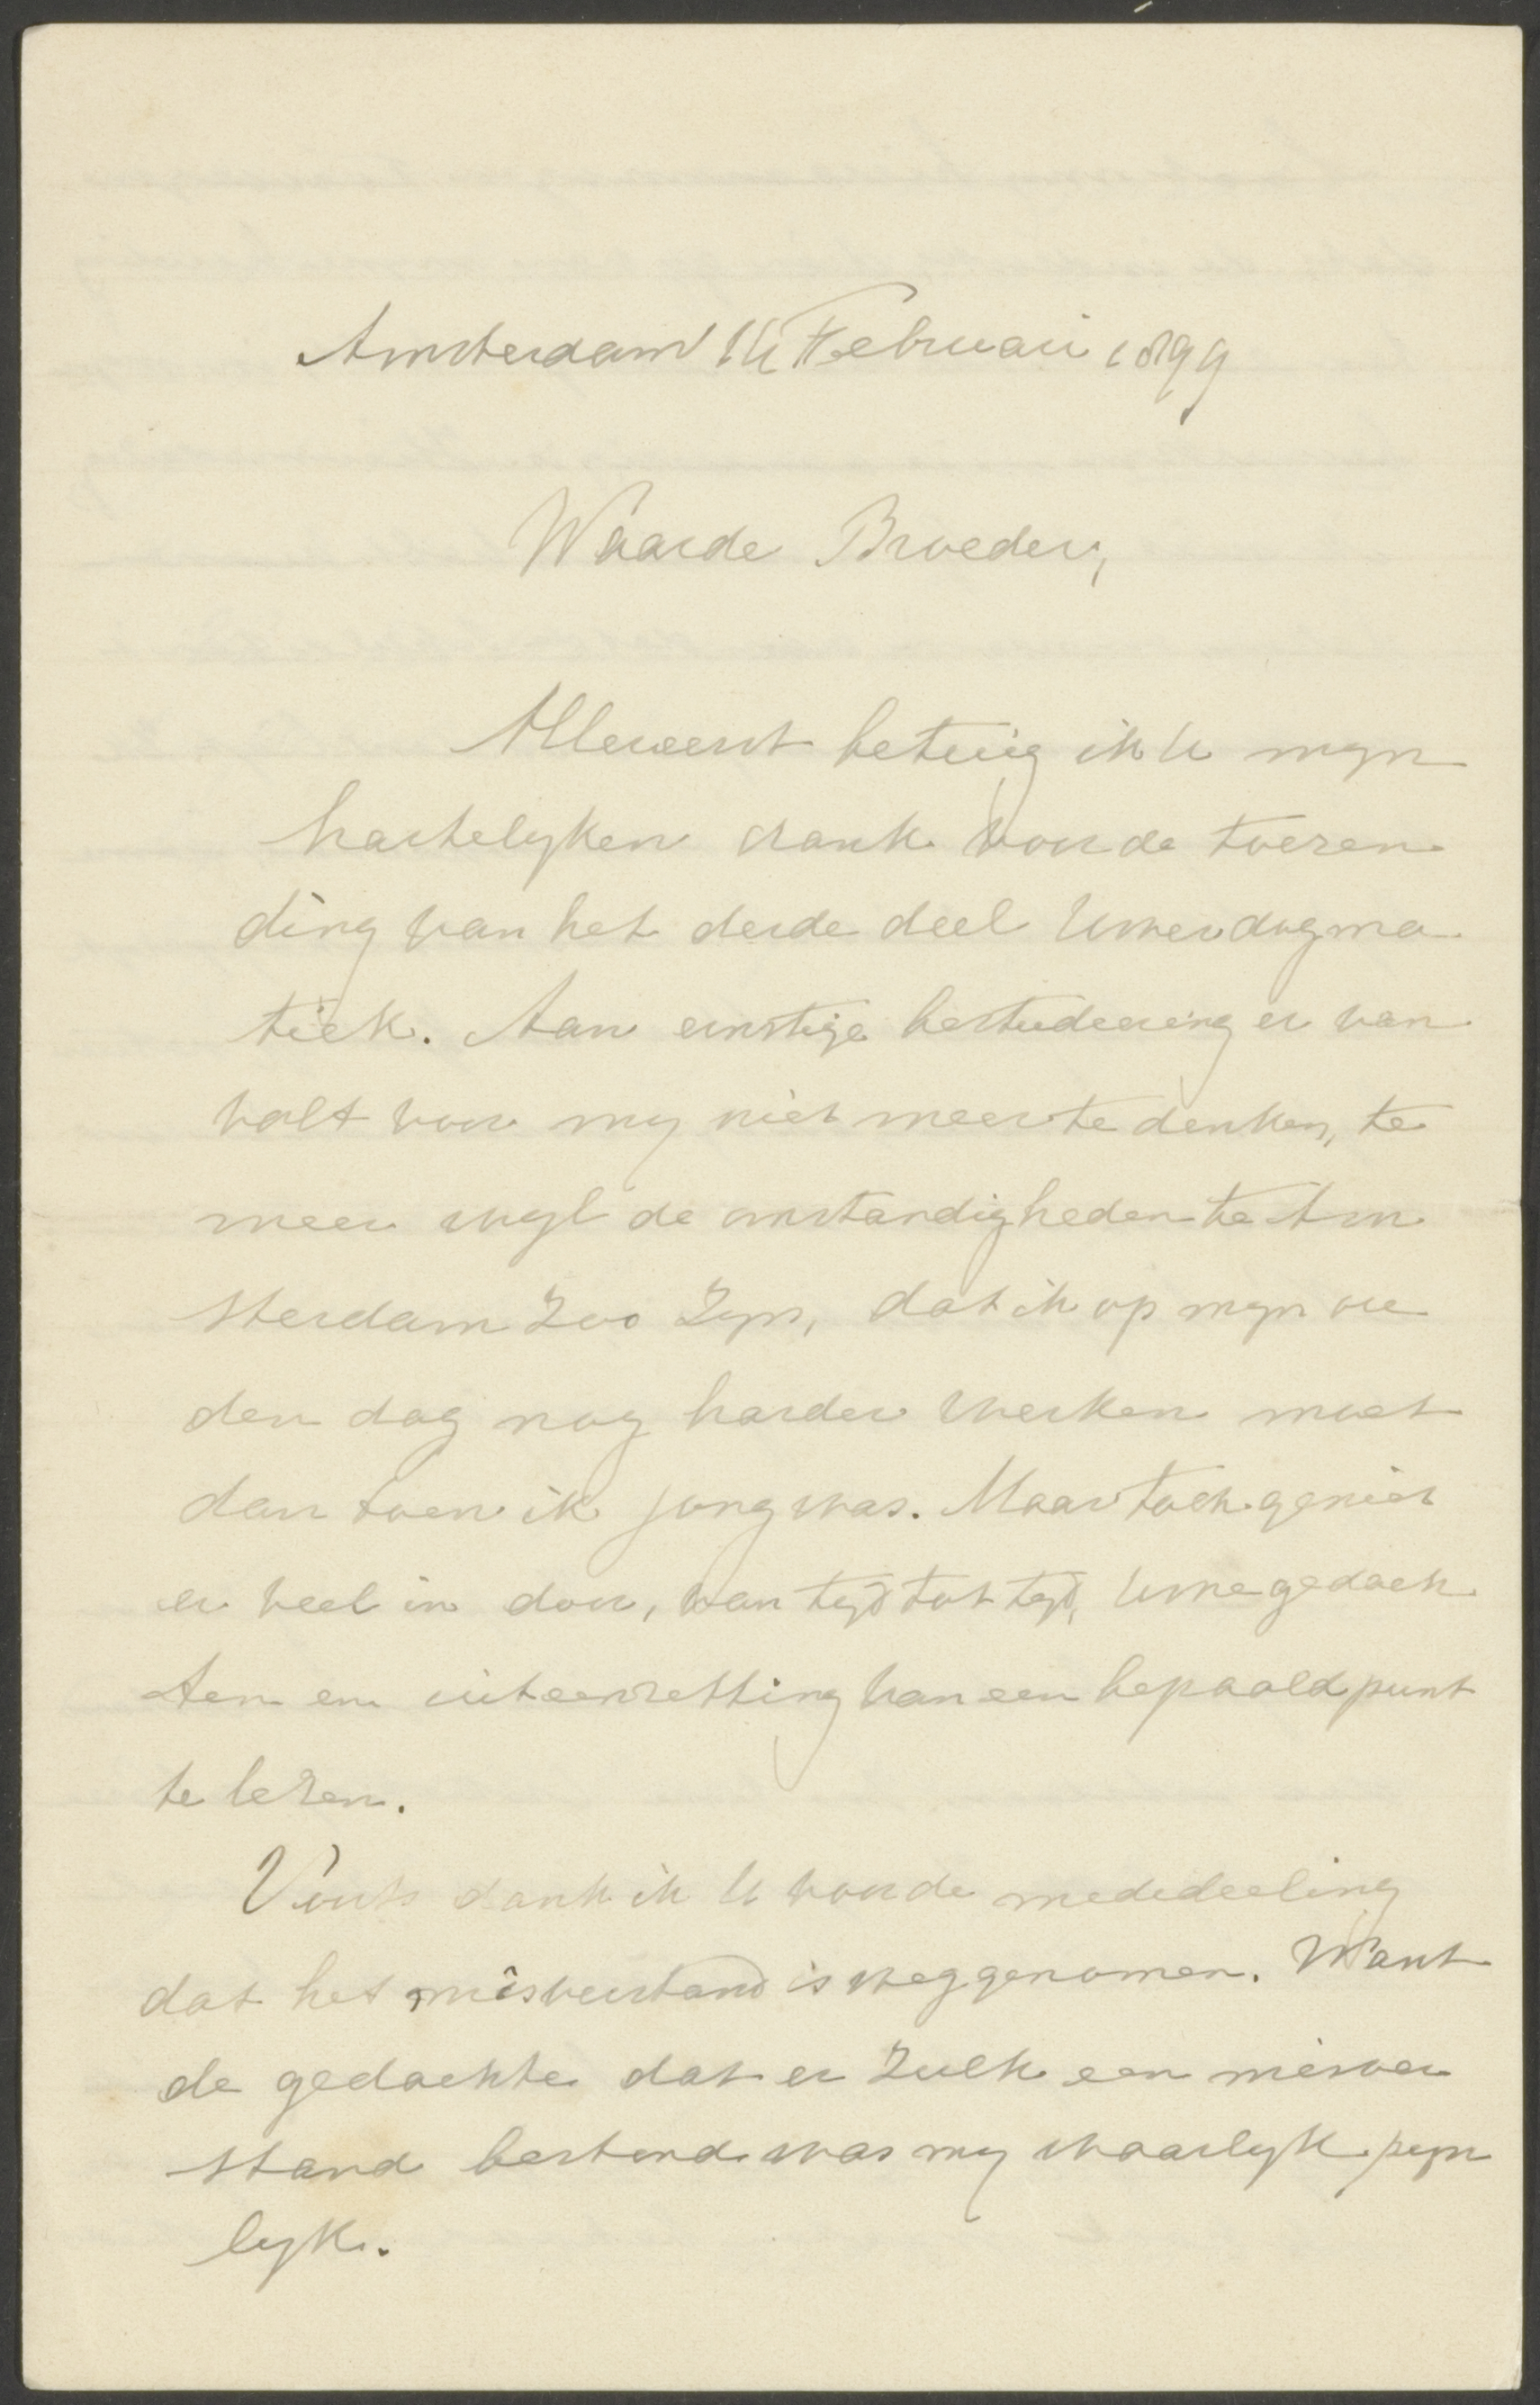 Amsterdam 14 Februari 1899
Waarde Broeder,
Allereerst betuig ik U mijn
hartelijken dank voor de toezen
ding van het derde deel Uwer dogma
tiek. Aan ernstige bestudeering er van
valt voor mij niet meer te denken, te
meer wijl de omstandigheden te Am
sterdam zoo zijn, dat ik op mijn ou
den dag nog harder werken moet
dan toen ik jong was. Maar toch geniet
er veel in door, van tijd tot tijd, Uwe gedach
ten en uiteenzetting van een bepaald punt
te lezen.
Voorts dank ik U voor de mededeeling
dat het misverstand is weggenomen. Want
de gedachte dat er zulk een misver
stand bestond was mij waarlijk pijn
lijk.